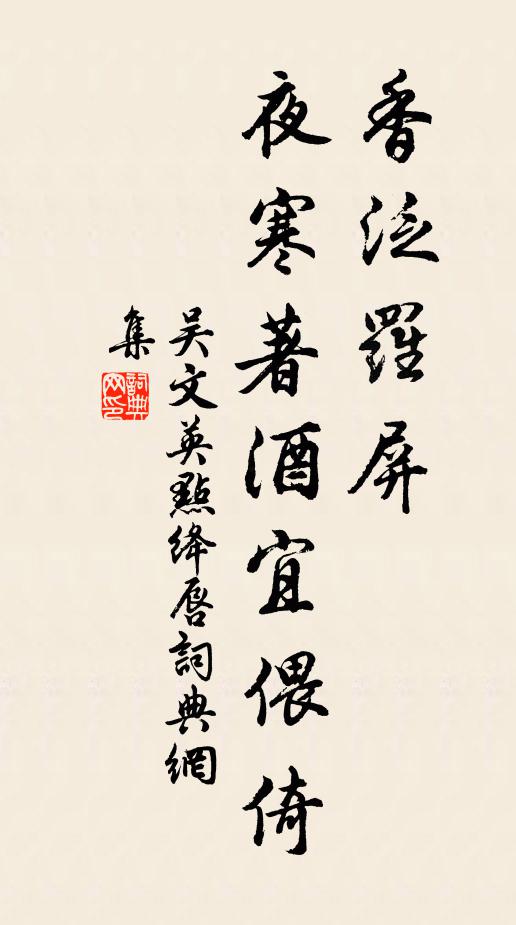 香泛羅屏
夜寒著酒宜偎倚
吳文英點絳唇詞典網
集
詞典网印